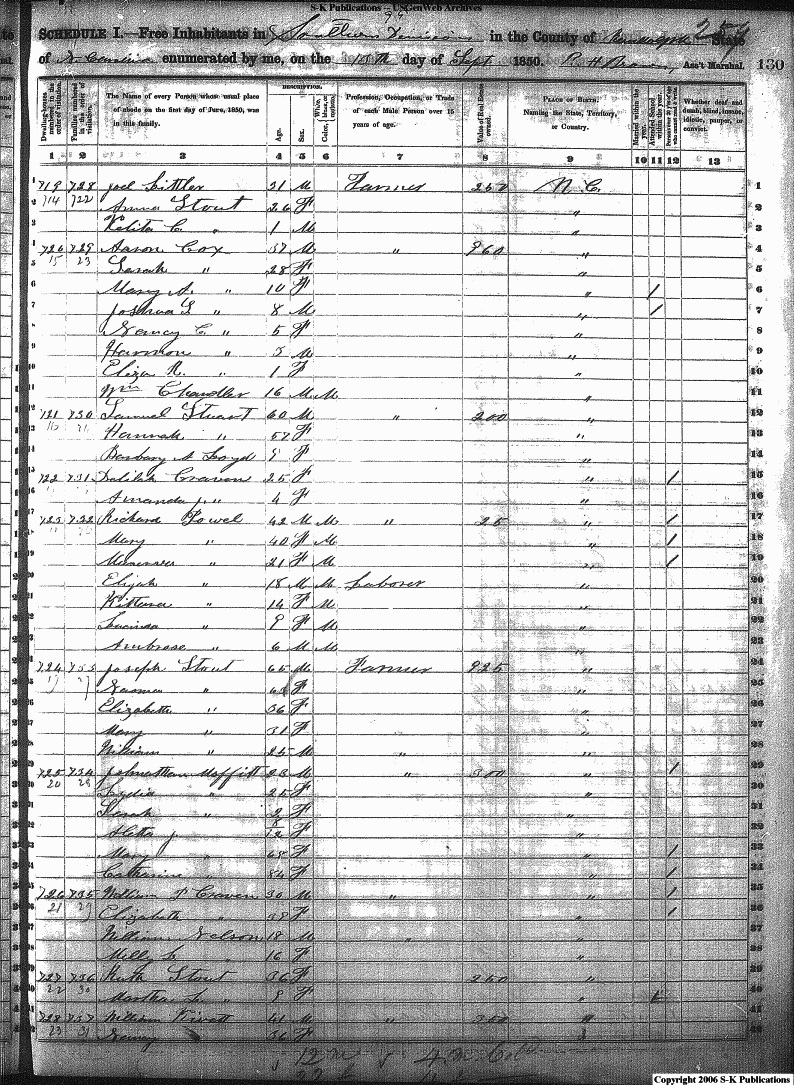 S-K Publications - USGenWeb Archives
SCHEDULE I.—Free Inhabitants in Southern Division in the County of State
of N. Carolina enumerated by me, on the 18th day of Sept. 1850. Ass't Marshal. 130
Dwelling-houses numbered in the order of visitation. Families numbered in the order of visitation. The Name of every Person whose usual place of abode on the first day of June, 1850, was in this family. DESCRIPTION. Age. Sex. White, black, or mulatto. Color, Profession, Occupation, or Trade of each Male Person over 15 years of age. Value of Real Estate owned. PLACE OF BIRTH. Naming the State, Territory, or Country. Married within the year. Attended School within the year. Persons over 20 y'rs of age who cannot read & write. Whether deaf and dumb, blind, insane, idiotic, pauper, or convict.
1 2 3 4 5 6 7 8 9 10 11 12 13
1 719 728 Joel 21 M Farmer 250 N C. 1
2 714 722 Anna Stout 26 F " 2
3 C. " 1 M " 3
4 720 729 Aaron Cox 37 M " 960 " 4
5 15 23 Sarah " 28 F 5
6 Mary A. " 10 F " / 6
7 Joshua S " 8 M " / 7
8 Nancy C " 5 F " 8
9 Harmon " 3 M " 9
10 Eliza R. " 1 F " 10
11 Wm Chandler 16 M M " 11
12 721 730 Samuel Stuart 60 M " 200 " 12
13 Hannah " 57 F " 13
14 Barbary A Loyd 9 F " 14
15 722 731 Delilah Craven 25 F " / 15
16 Amanda J. " 4 F " 16
17 723 732 Richard Powel 42 M M " 25 " / 17
18 Mary " 40 F M " / 18
19 " 21 F M " / 19
20 Elijah " 18 M M Laborer " 20
21 " 14 F M 21
22 Lucinda " 9 F M " 22
23 Ambrose " 6 M M 23
24 724 733 Joseph Stout 65 M Farmer 925 " 24
25 " F " 25
26 Elizabeth " 36 F " 26
27 Mary " 31 F " 27
28 William " 25 M " " 28
29 725 734 Johnathan Moffitt 23 M " 300 " / 29
30 20 Lydia " 25 F " 30
31 Sarah " 2 F 31
32 J. 12 F " 32
33 Mary " 68 F " / 33
34 Catharine " 84 F " / 34
35 726 735 William T Craven 30 M " " / 35
36 21 29 Elizabeth " 38 F " / 36
37 William Nelson 18 M " " 37
38 Milly 16 F " 38
39 727 736 Ruth Stout 36 F 250 " 39
40 22 30 Martha " 9 F " 40
41 728 737 William 41 M " 350 " 41
42 23 31 Nancy 36 F 42
Copyright 2006 S-K Publications